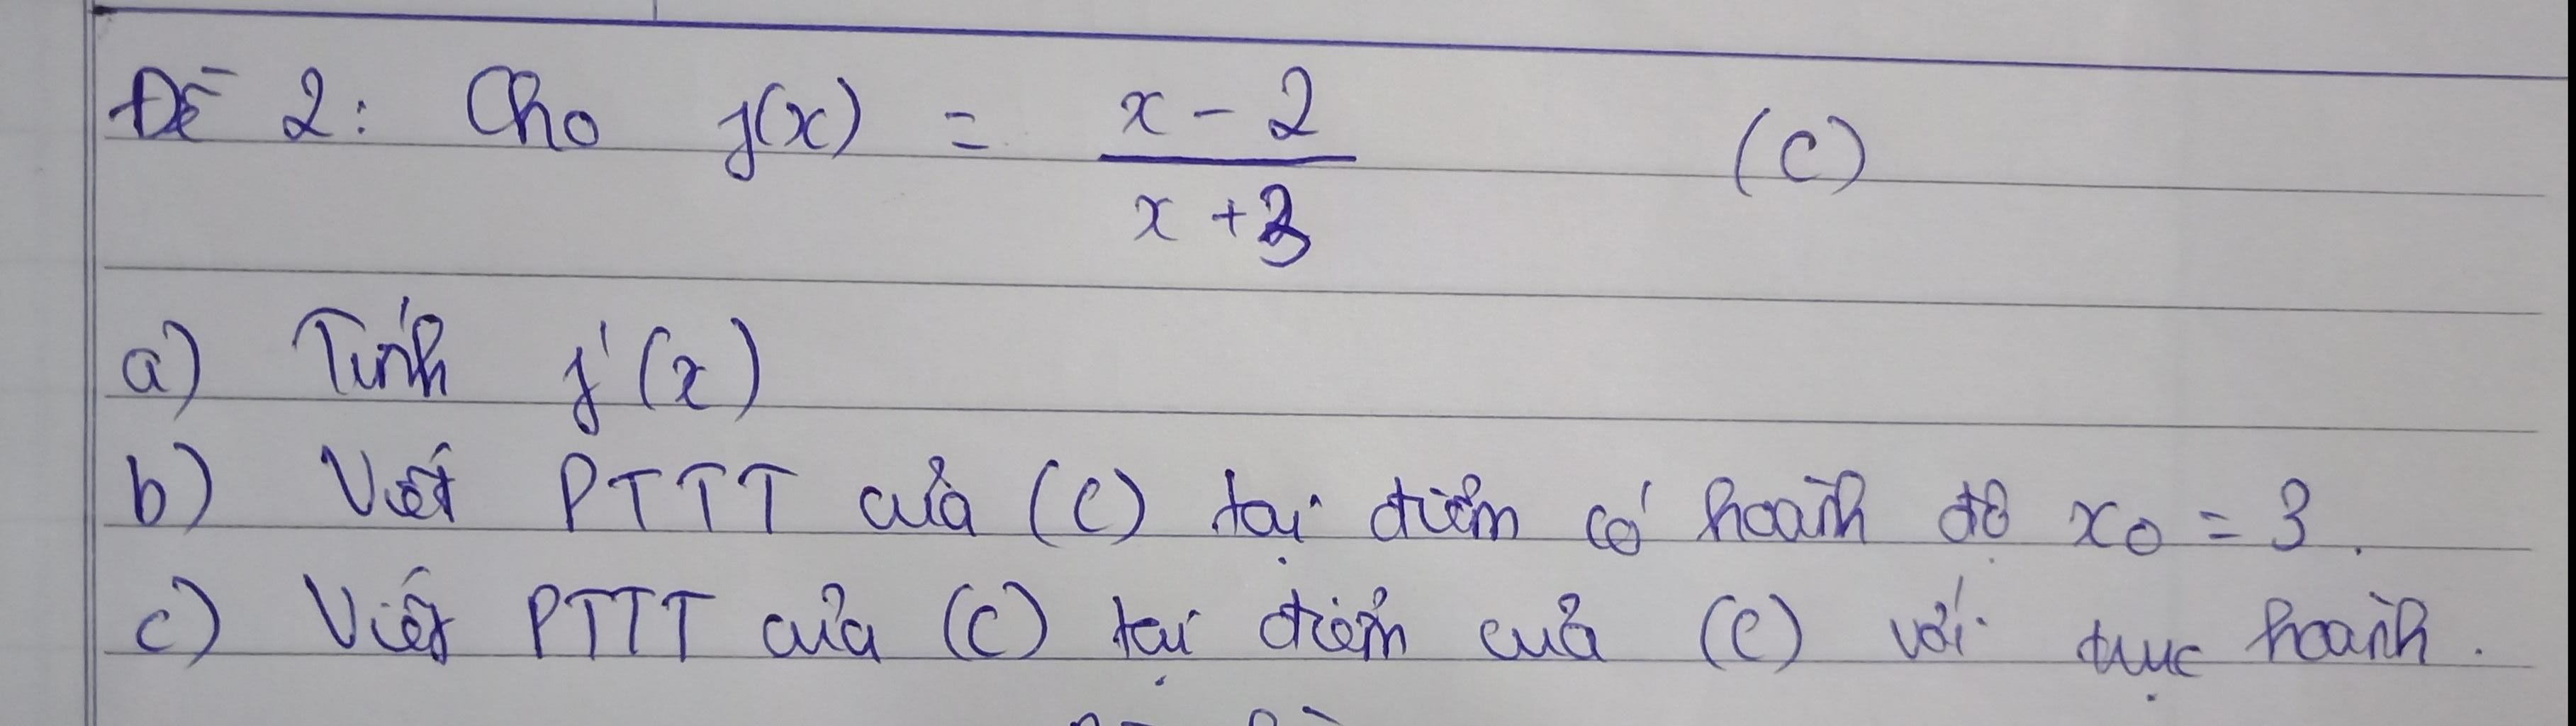 Đề 2: Cho f(x) = (x - 2)/(x + 3) (C)
a) Tính f'(x)
b) Viết PTTT của (C) tại điểm có hoành độ x₀ = 3.
c) Viết PTTT của (C) tại điểm của (C) với trục hoành.